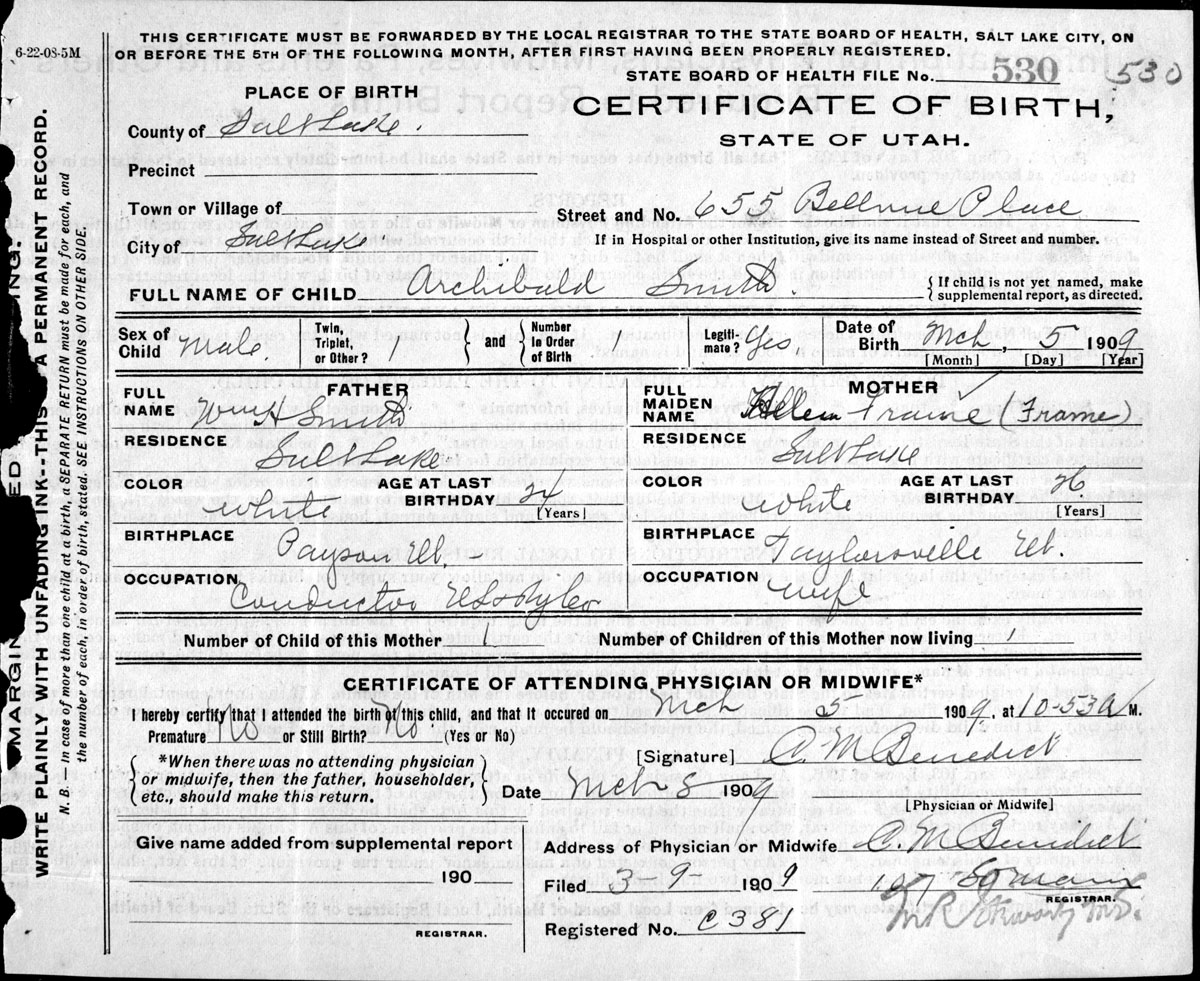 6-22-08-5M
THIS CERTIFICATE MUST BE FORWARDED BY THE LOCAL REGISTRAR TO THE STATE BOARD OF HEALTH, SALT LAKE CITY, ON
OR BEFORE THE 5TH OF THE FOLLOWING MONTH, AFTER FIRST HAVING BEEN PROPERLY REGISTERED.
STATE BOARD OF HEALTH FILE No. 530 530
PLACE OF BIRTH
CERTIFICATE OF BIRTH,
STATE OF UTAH.
County of Salt Lake.
Precinct
Town or Village of
Street and No. 655 Bellvue Place
City of Salt Lake
If in Hospital or other Institution, give its name instead of Street and number.
FULL NAME OF CHILD Archibald Smith.
{ If child is not yet named, make
supplemental report, as directed.
Sex of Child Male.
Twin, Triplet, or Other? 1
} and {
Number in Order of Birth
Legiti-mate? Yes
Date of Birth Mch, 5 1909
[Month] [Day] [Year]
FATHER
FULL NAME Wm H Smith
RESIDENCE Salt Lake
COLOR White
AGE AT LAST BIRTHDAY 24 [Years]
BIRTHPLACE Payson Ut.
OCCUPATION Conductor
MOTHER
FULL MAIDEN NAME Frame (Frame)
RESIDENCE Salt Lake
COLOR White
AGE AT LAST BIRTHDAY 26 [Years]
BIRTHPLACE Taylorsville Ut.
OCCUPATION Wife
Number of Child of this Mother
Number of Children of this Mother now living 1
CERTIFICATE OF ATTENDING PHYSICIAN OR MIDWIFE*
I hereby certify that I attended the birth of this child, and that it occured on Mch 5 1909, at 10-53 A M.
Premature No or Still Birth? No. (Yes or No)
[Signature] C. M. Benedict
{ *When there was no attending physician
or midwife, then the father, householder,
etc., should make this return. }
Date Mch 8 1909
[Physician or Midwife]
Give name added from supplemental report
190
REGISTRAR.
Address of Physician or Midwife C. M. Benedict
Filed 3-9- 1909
REGISTRAR.
Registered No. C 381
MARGIN
WRITE PAINLY WITH UNFADING INK--THIS A PERMANENT RECORD.
N. B.— In case of more than one child at a birth, a SEPARATE RETURN must be made for each, and
the number of each, in order of birth, stated. SEE INSTRUCTIONS ON OTHER SIDE.